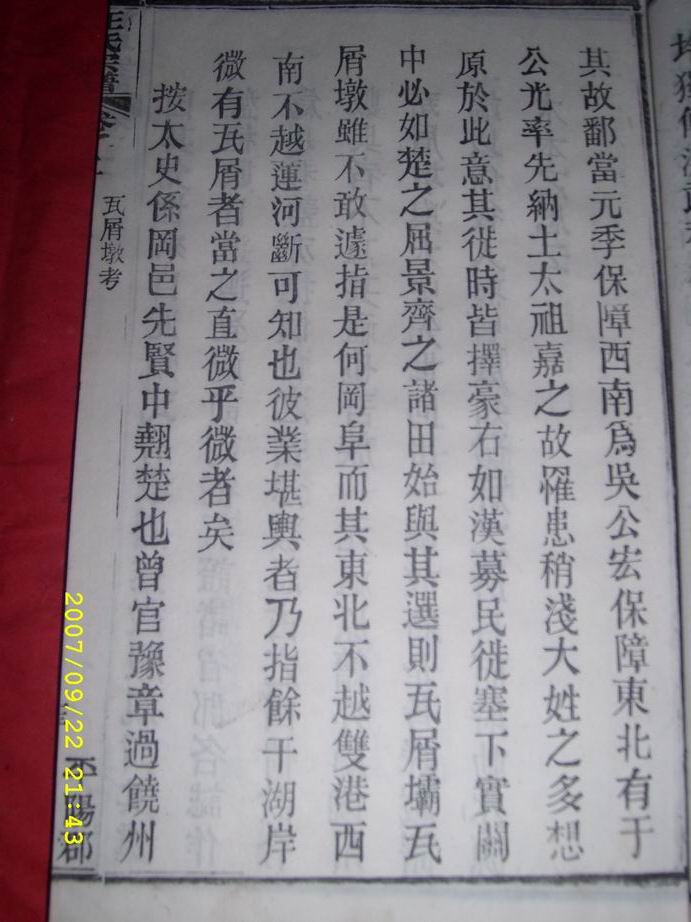 其故鄱當元季保障西南爲吳公宏保障東北有于
公光率先納土太祖嘉之故罹患稍淺大姓之多想
原於此意其徙時皆擇豪右如漢募民徙塞下實關
中必如楚之屈景齊之諸田始與其選則瓦屑壩瓦
屑墩雖不敢遽指是何岡阜而其東北不越雙港西
南不越蓮河斷可知也彼業堪輿者乃指餘干湖岸
微有瓦屑者當之直微乎微者矣
按太史係岡邑先賢中翹楚也曾官豫章過饒州
王氏宗譜
瓦屑墩考
平陽郡
2007/09/22 21:43